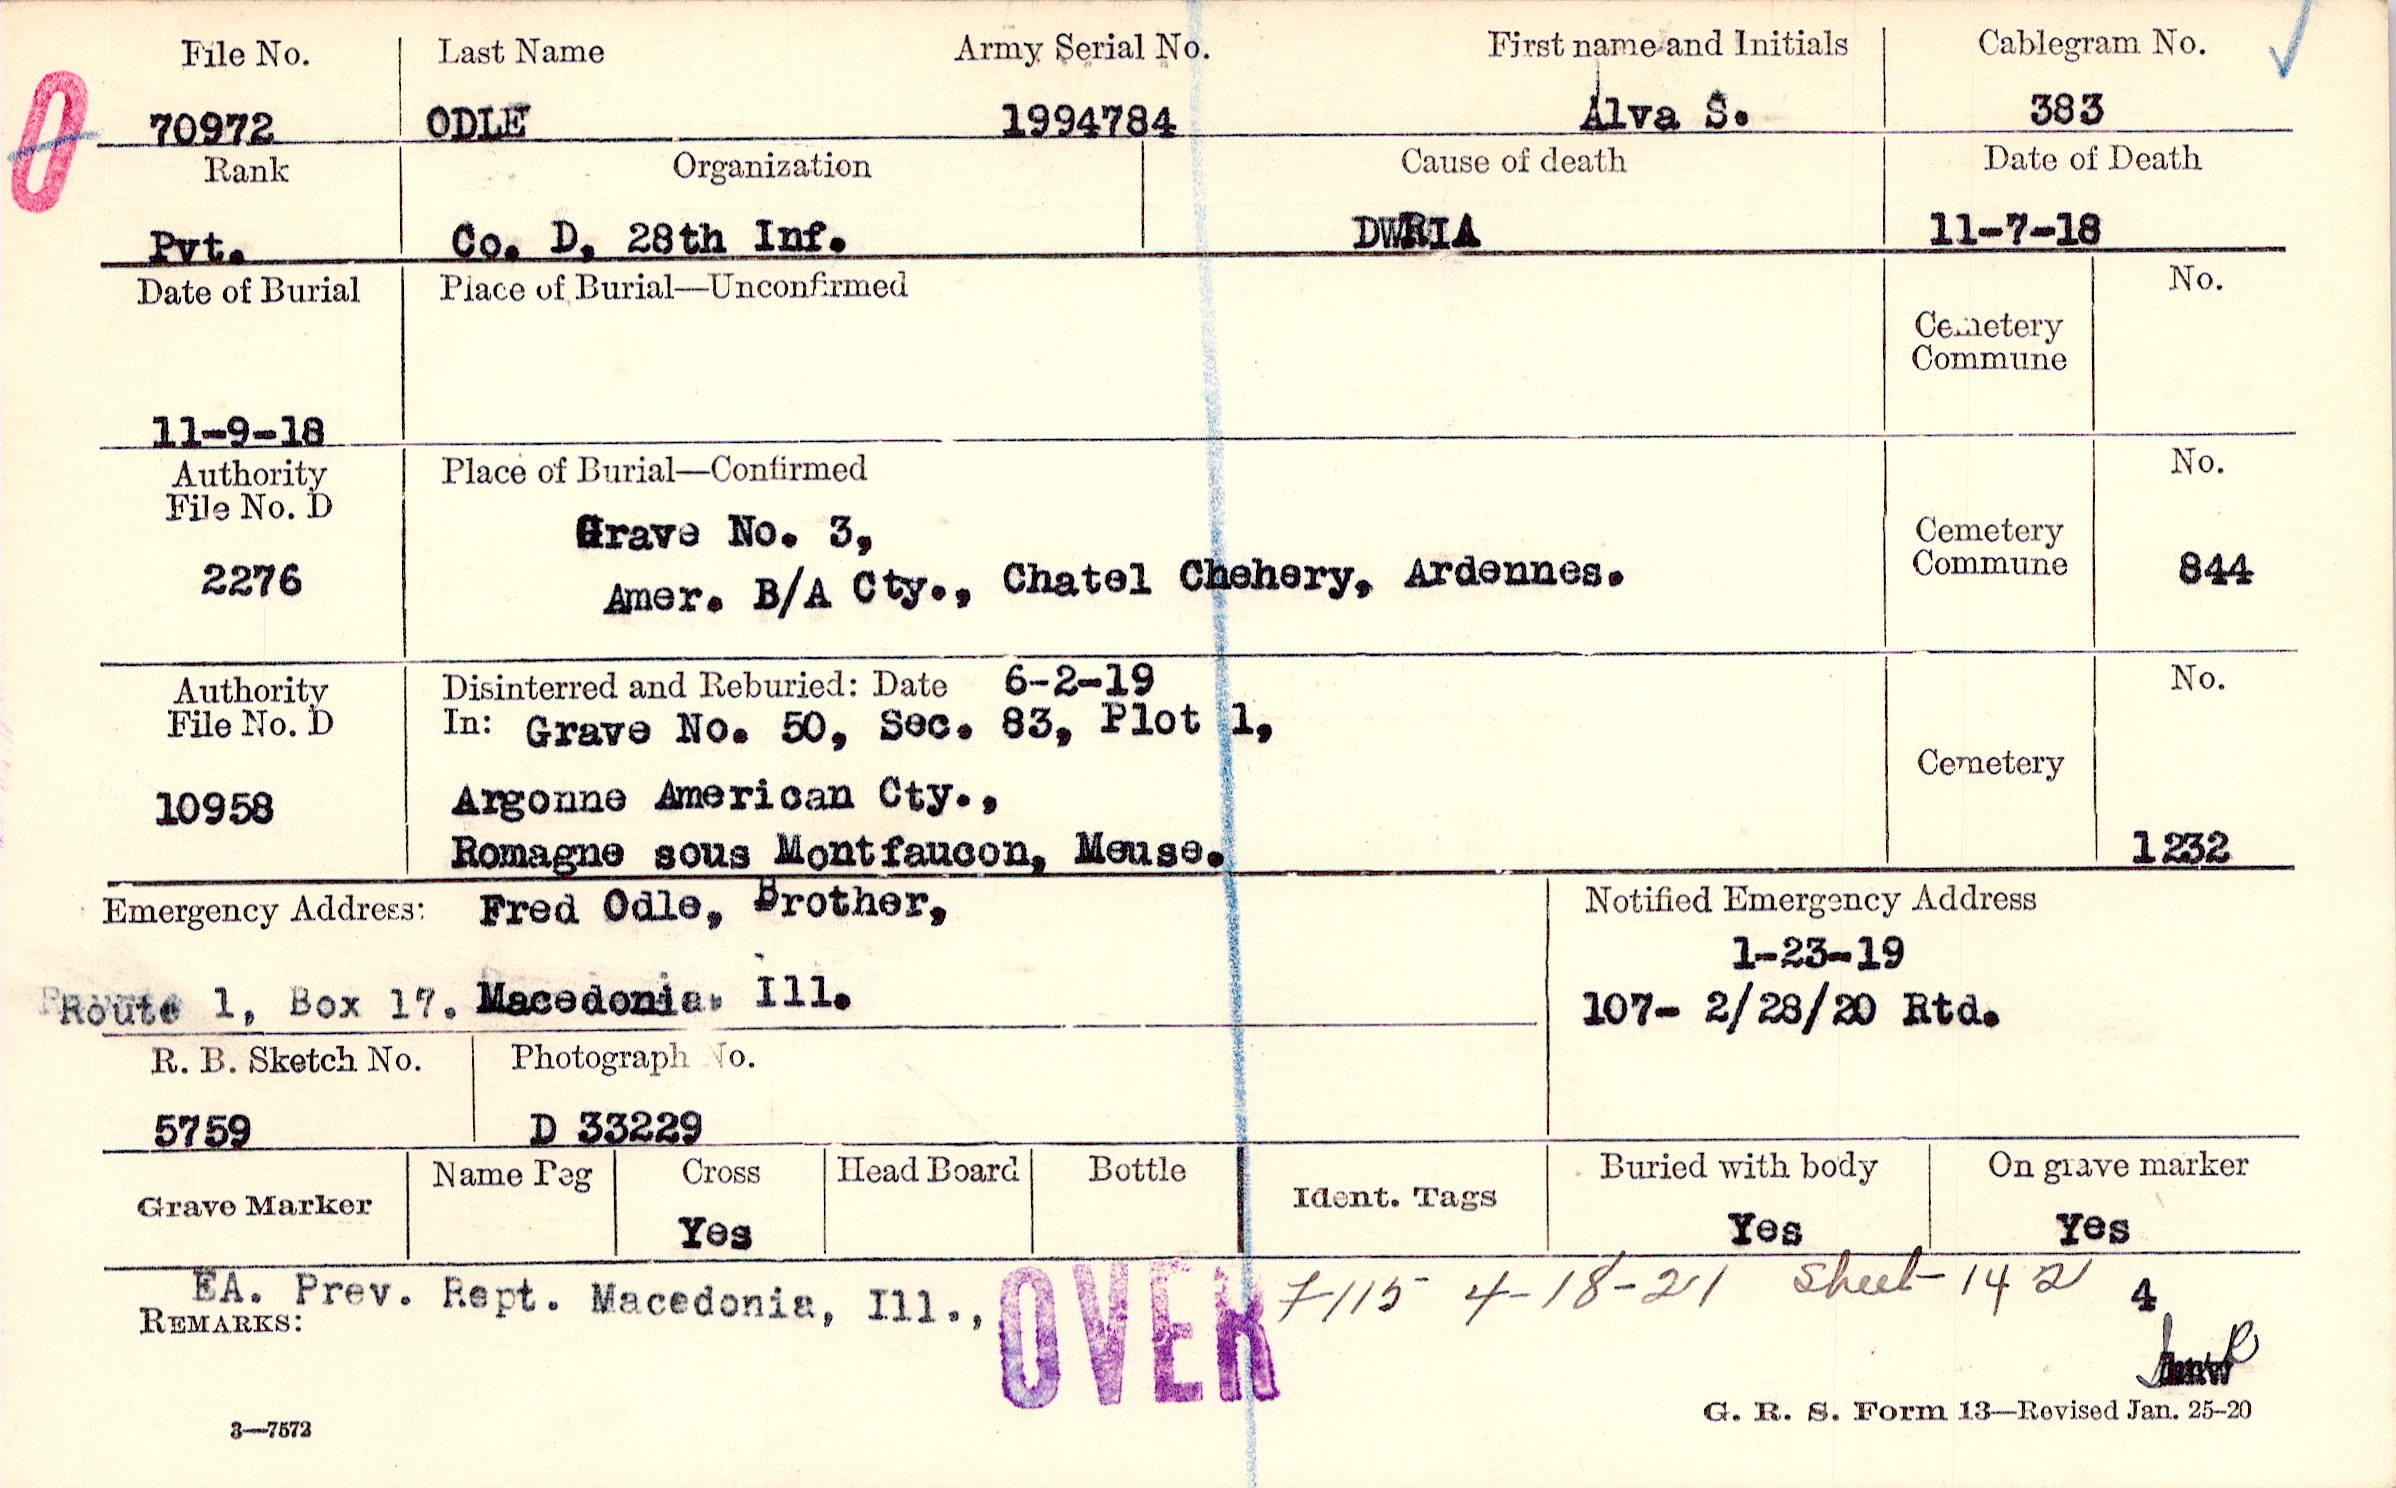 File No. Last Name Army Serial No. First name and Initials Cablegram No.
O 70972 ODLE 1994784 Alva S. 383
Rank Organization Cause of death Date of Death
Pvt. Co. D, 28th Inf. DWRIA 11-7-18
Date of Burial Place of Burial—Unconfirmed No.
Cemetery
Commune
11-9-18
Authority Place of Burial—Confirmed No.
File No. D
Grave No. 3, Cemetery
2276 Amer. B/A Cty., Chatel Chehery, Ardennes. Commune 844
Authority Disinterred and Reburied: Date 6-2-19 No.
File No. D In: Grave No. 50, Sec. 83, Plot 1,
Cemetery
10958 Argonne American Cty.,
Romagne sous Montfaucon, Meuse. 1232
Emergency Address: Fred Odle, Brother, Notified Emergency Address
1-23-19
Route 1, Box 17. Macedonia. Ill. 107- 2/28/20 Rtd.
R. B. Sketch No. Photograph No.
5759 D 33229
Grave Marker Name Peg Cross Head Board Bottle Ident. Tags Buried with body On grave marker
Yes Yes Yes
EA. Prev. Rept. Macedonia, Ill., OVER 7115 4-18-21 Sheet-142 4
REMARKS:
3—7572 G. R. S. Form 13—Revised Jan. 25-20